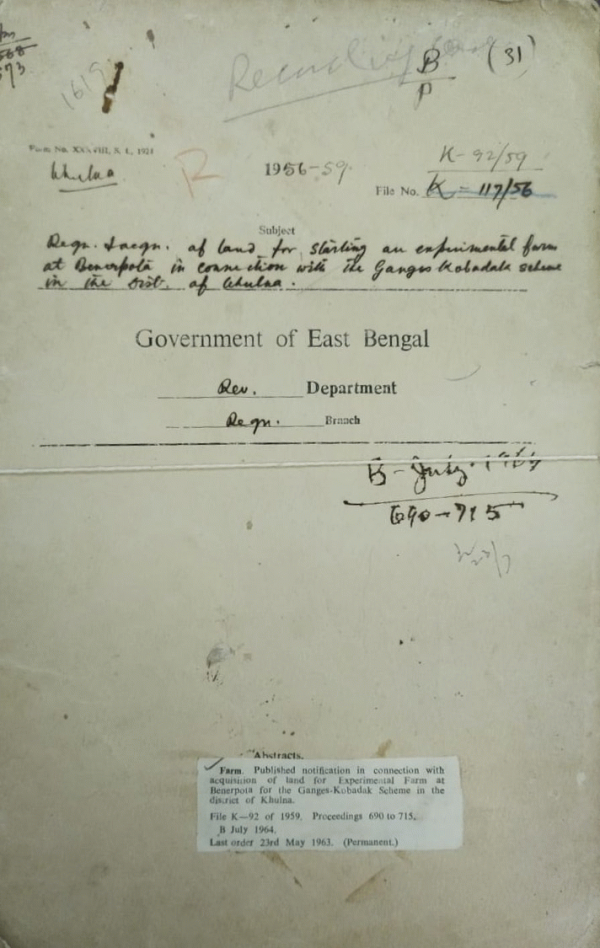 1619
Recording
B
P
(31)
Form No. XXXVIII, S. I., 1921
Khulna
R
1956-59
K-92/59
File No. K-117/56
Subject
Reqn. & acqn. of land for starting an experimental farm
at Benerpota in connection with the Ganges Kobadak scheme
in the Dist. of Khulna.
Government of East Bengal
Rev. Department
Reqn. Branch
B-July-1964
690-715
Abstracts.
Farm. Published notification in connection with
acquisition of land for Experimental Farm at
Benerpota for the Ganges-Kobadak Scheme in the
district of Khulna.
File K—92 of 1959. Proceedings 690 to 715.
B July 1964.
Last order 23rd May 1963. (Permanent.)